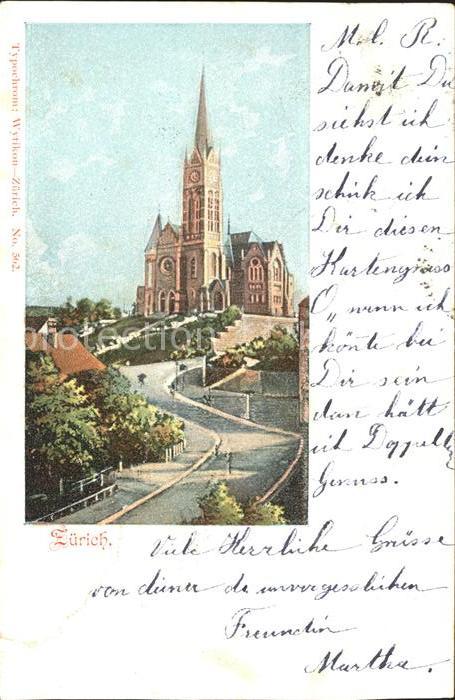 Typochrom: Wytikon-Zürich. No. 562.
M. l. R.
Damit Du
siehst ich
denke dein
schik ich
Dir diesen
Kartengruss
O, wenn ich
könte bei
Dir sein
dan hätt
ich Doppelt
Genuss.
Zürich.
Viele Herzliche Grüsse
von deiner dr unvergesslichen
Freundin
Martha.
protection